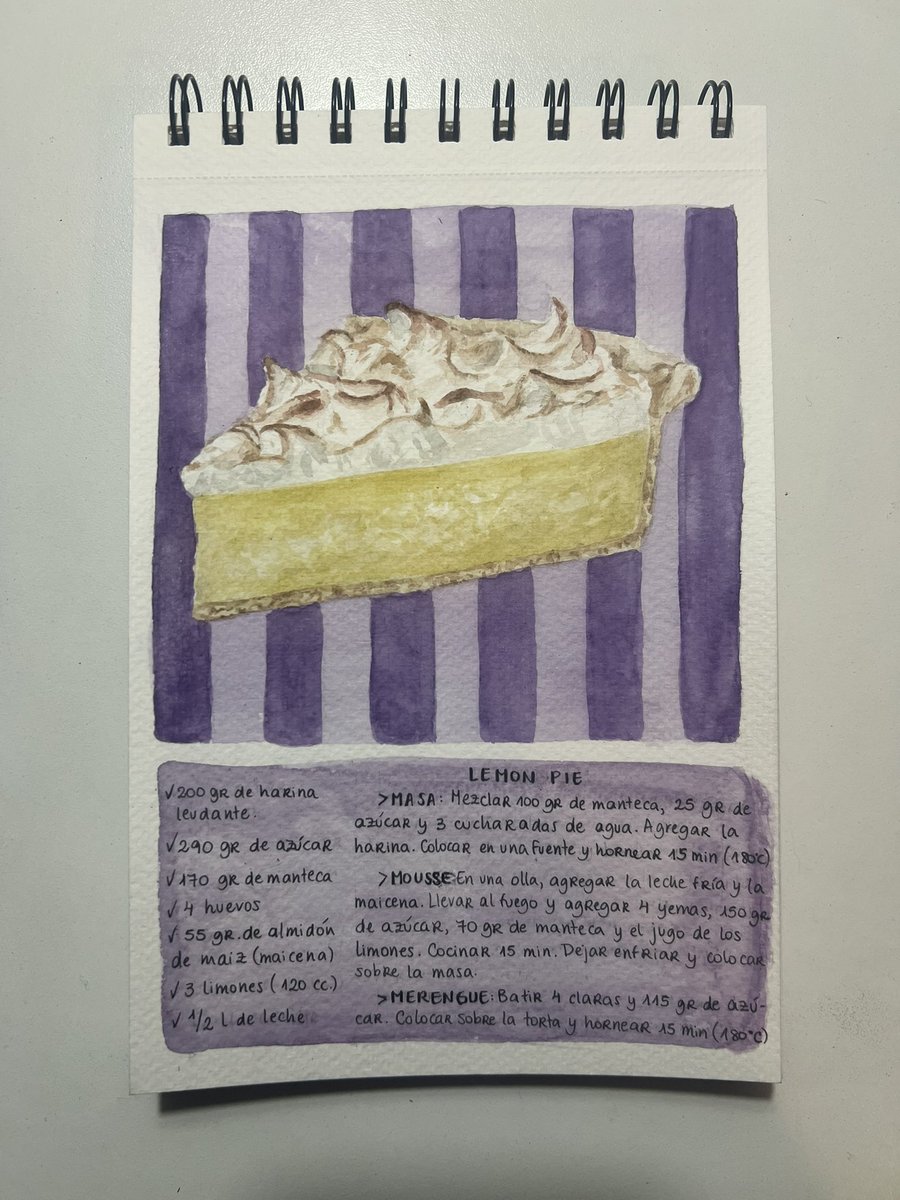 LEMON PIE
✓200 gr de harina
leudante.
✓290 gr de azúcar
✓170 gr de manteca
✓ 4 huevos
✓ 55 gr. de almidón
de maiz (maicena)
✓ 3 limones (120 cc.)
✓ 1/2 l de leche
>MASA: Mezclar 100 gr de manteca, 25 gr de
azúcar y 3 cucharadas de agua. Agregar la
harina. Colocar en una fuente y hornear 15 min (180°C)
>MOUSSE: En una olla, agregar la leche fría y la
maicena. Llevar al fuego y agregar 4 yemas, 150 gr
de azúcar, 70 gr de manteca y el jugo de los
limones. Cocinar 15 min. Dejar enfriar y colocar
sobre la masa.
>MERENGUE: Batir 4 claras y 115 gr de azú-
car. Colocar sobre la torta y hornear 15 min (180°C)